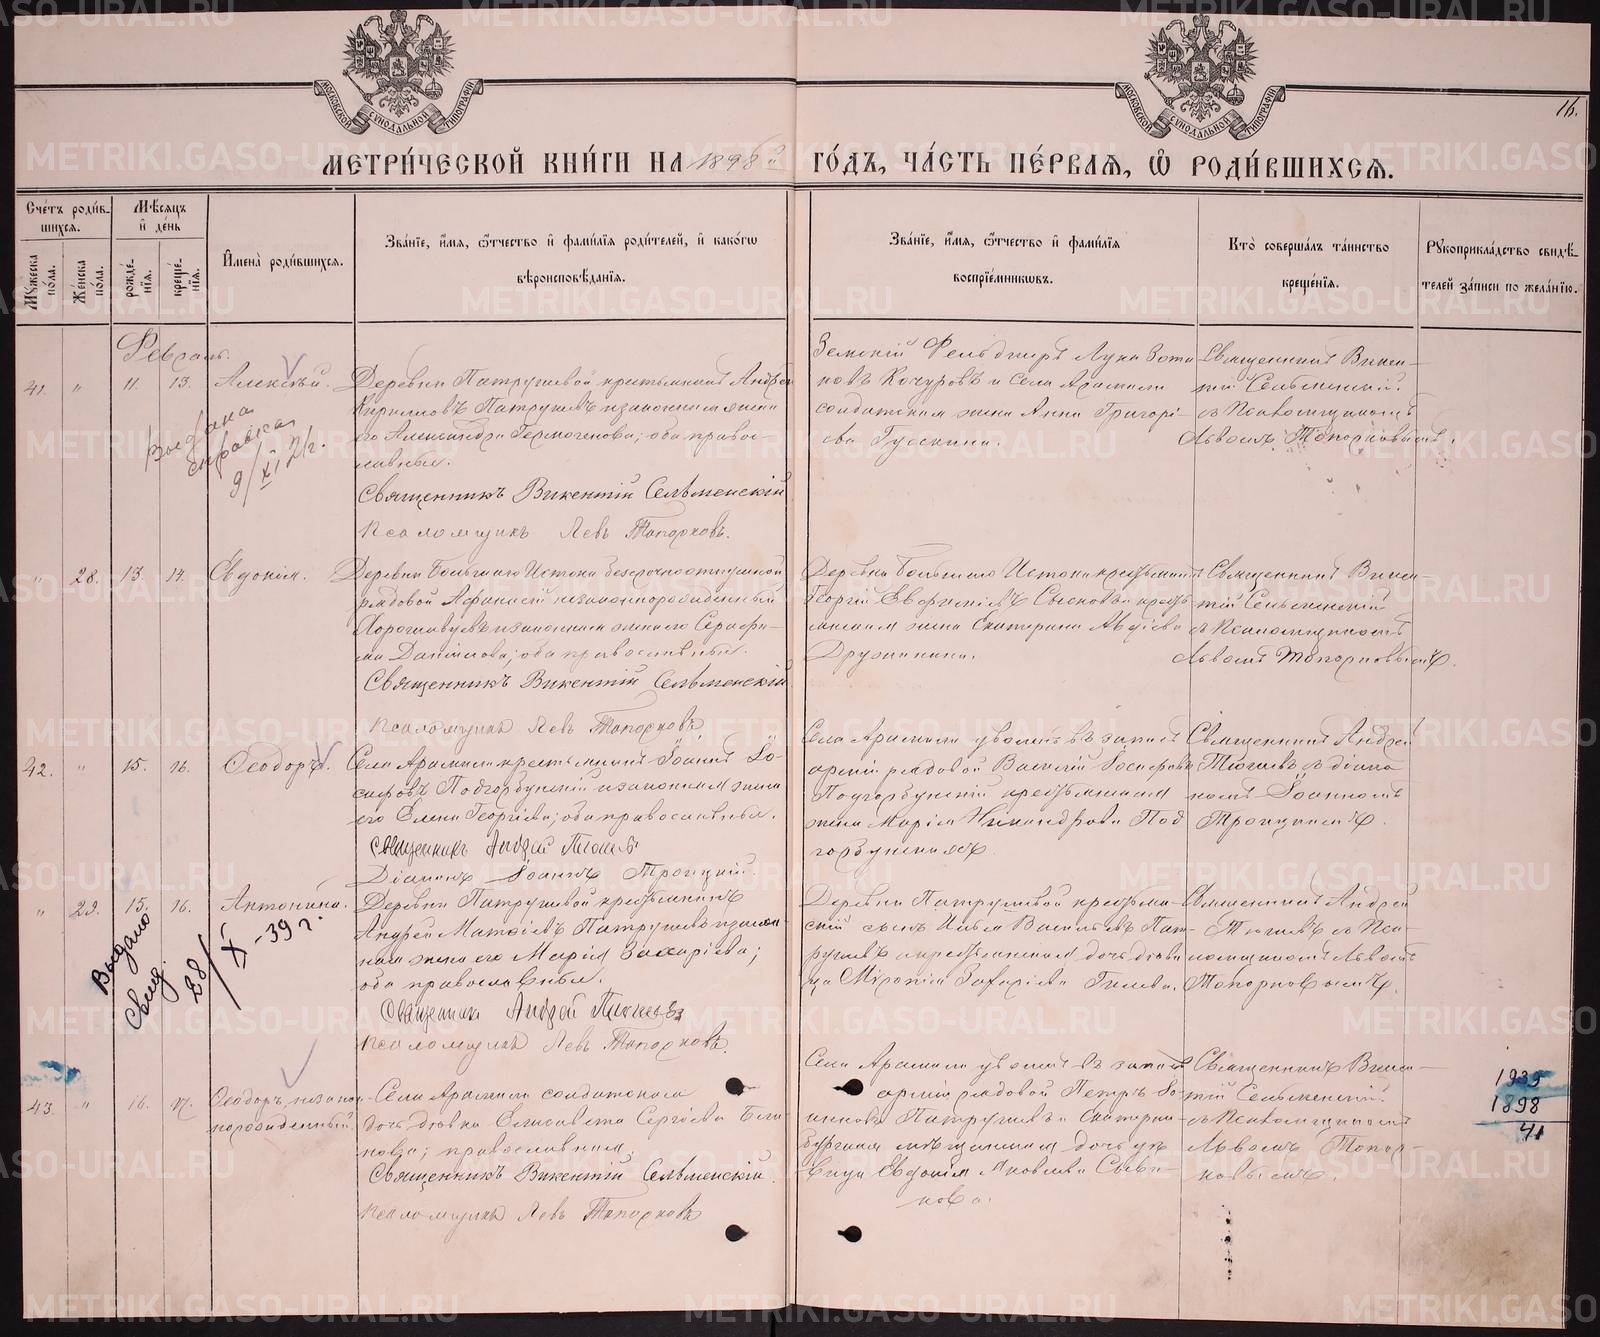 МОСКОВСКОЙ СѴНОДАЛЬНОЙ ТИПОГРАФІИ
МОСКОВСКОЙ СѴНОДАЛЬНОЙ ТИПОГРАФІИ
16.
МЕТРИ́ЧЕСКОЙ КНИ́ГИ НА 1898й ГО́ДЪ, ЧА́СТЬ ПЕ́РВАЯ, Ѡ РОДИ́ВШИХСЯ.
Сче́тъ роди́в-
шихся.
Му́жеска по́ла.
Же́нска по́ла.
Мѣ́сяцъ и де́нь
рожде́-нїя.
креще́-нїя.
Имена̀ роди́вшихся.
Зва́нїе, и́мя, ѻ́тчество и фами́лїя роди́телей, и како́гѡ
вѣроисповѣ́данїя.
Зва́нїе, и́мя, ѻ́тчество и фами́лїя
воспрїе́мниковъ.
Кто̀ соверша́лъ та́инство
креще́нїя.
Рукоприкла́дство свидѣ́-
телей за́писи по жела́нїю.
Февраль.
41. " 11. 13. Алексѣй.
Деревни Патрушевой крестьянинъ Андрей
Кирилловъ Патрушевъ и законная жена
его Александра Гермогенова; оба право-
славные.
Священникъ Викентій Сельменскій
Псаломщикъ Левъ Топорковъ.
Земскій Фельдшеръ Лука Зоти-
ковъ Кочуровъ и Села Арамили
солдатская жена Анна Григорі-
ева Гускина.
Священникъ Викен-
тій Сельменскій
съ Псаломщикомъ
Львомъ Топорковымъ.
Выдана
справка
9/XI 21г.
" 28. 13. 14. Евдокія.
Деревни Большаго Истока безсрочноотпускной
рядовой Афанасій незаконнорожденный
и законная жена его Серафи-
ма Данилова; оба православные.
Священникъ Викентій Сельменскій
Псаломщикъ Левъ Топорковъ
Деревни Большаго Истока крестьянинъ
Георгій Евфиміевъ и кресть-
янская жена Екатерина Авдіева
Дружинина.
Священникъ Викен-
тій Сельменскій
съ Псаломщикомъ
Львомъ Топорковымъ.
42. " 15. 16. Ѳеодоръ.
Села Арамили крестьянинъ Іоаннъ Іо-
сифовъ Подгорбунскій и законная жена
его Елена Георгіева; оба православные.
Священникъ Андрей
Діаконъ Іоаннъ Троицкій.
Села Арамили уволенъ въ запасъ
арміи рядовой Василій Іосифовъ
Подгорбунскій крестьянская
жена Марія Никандрова Под-
горбунская.
Священникъ Андрей
съ діако-
номъ Іоанномъ
Троицкимъ.
" 29. 15. 16. Антонина.
Деревни Патрушевой крестьянинъ
Андрей Матѳіевъ Патрушевъ и закон-
ная жена его Марія Захаріева;
оба православные.
Священникъ Андрей
Псаломщикъ Левъ Топорковъ
Деревни Патрушевой крестьян-
скій сынъ Илья Васильевъ Пат-
рушевъ и крестьянская дочь дѣви-
ца Захаріева
Священникъ Андрей
съ Пса-
ломщикомъ Львомъ
Топорковымъ.
Выдано
свид.
28/X-39 г.
43. " 16. 17. Ѳеодоръ, незакон-
норожденный.
Села Арамили солдатская
дочь дѣвка Елисавета Сергіева
православная.
Священникъ Викентій Сельменскій
Псаломщикъ Левъ Топорковъ
Села Арамили уволенъ въ запасъ
арміи рядовой Петръ Іо-
анновъ Патрушевъ и Екатерин-
бургская мѣщанская дочь дѣ-
вица Евдокія Яковлева
Священникъ Викен-
тій Сельменскій
съ Псаломщикомъ
Львомъ Топор-
ковымъ.
1939
1898
41
METRIKI.GASO-URAL.RU